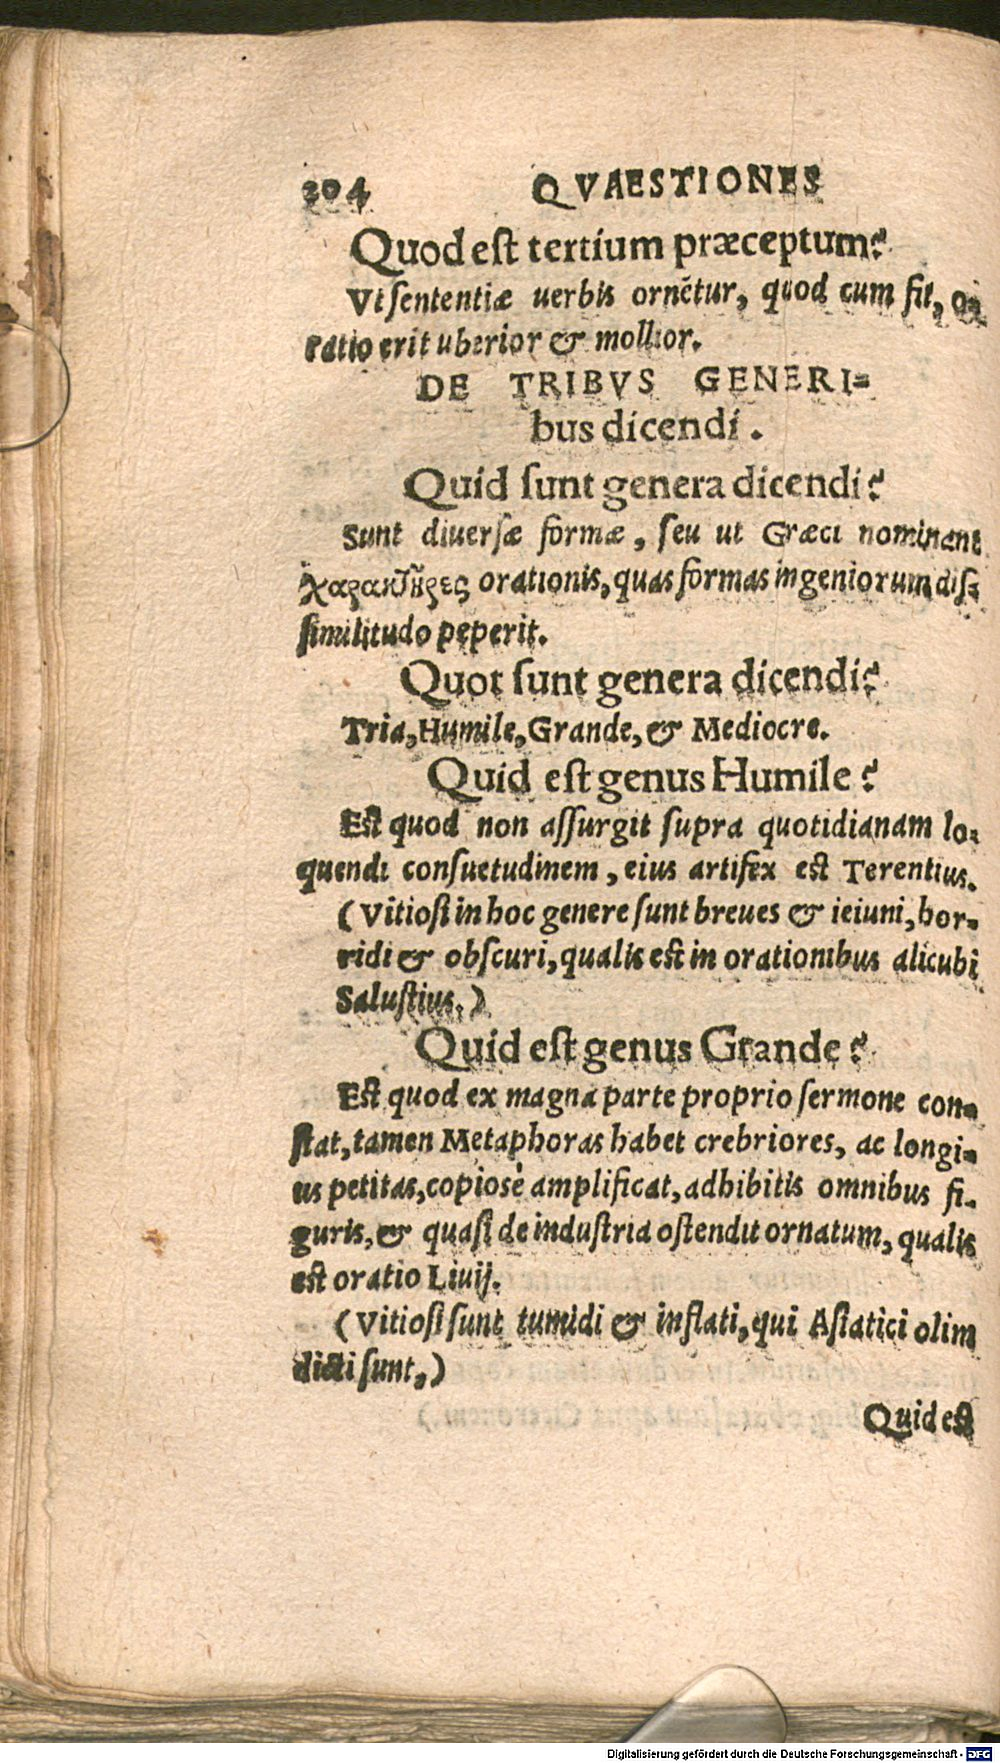 204 QVAESTIONES
Quod est tertium præceptum?
Vt sententiæ uerbis ornẽtur, quod cum fit, o-
ratio erit uberior & mollior.
DE TRIBVS GENERI-
bus dicendi.
Quid ſunt genera dicendi?
Sunt diuerſæ formæ, ſeu ut Græci nominant
χαρακτῆρες orationis, quas formas ingeniorum diſ-
ſimilitudo peperit.
Quot ſunt genera dicendi?
Tria, Humile, Grande, & Mediocre.
Quid eſt genus Humile?
Eſt quod non aſſurgit ſupra quotidianam lo-
quendi conſuetudinem, eius artifex eſt Terentius.
(Vitioſi in hoc genere ſunt breues & ieiuni, hor-
ridi & obſcuri, qualis eſt in orationibus alicubi
Saluſtius.)
Quid eſt genus Grande?
Eſt quod ex magna parte proprio ſermone con-
ſtat, tamen Metaphoras habet crebriores, ac longi-
us petitas, copiosè amplificat, adhibitis omnibus fi-
guris, & quaſi de induſtria oſtendit ornatum, qualis
eſt oratio Liuij.
(Vitioſi ſunt tumidi & inflati, qui Aſiatici olim
dicti ſunt,)
Quid eſt
Digitalisierung gefördert durch die Deutsche Forschungsgemeinschaft - DFG